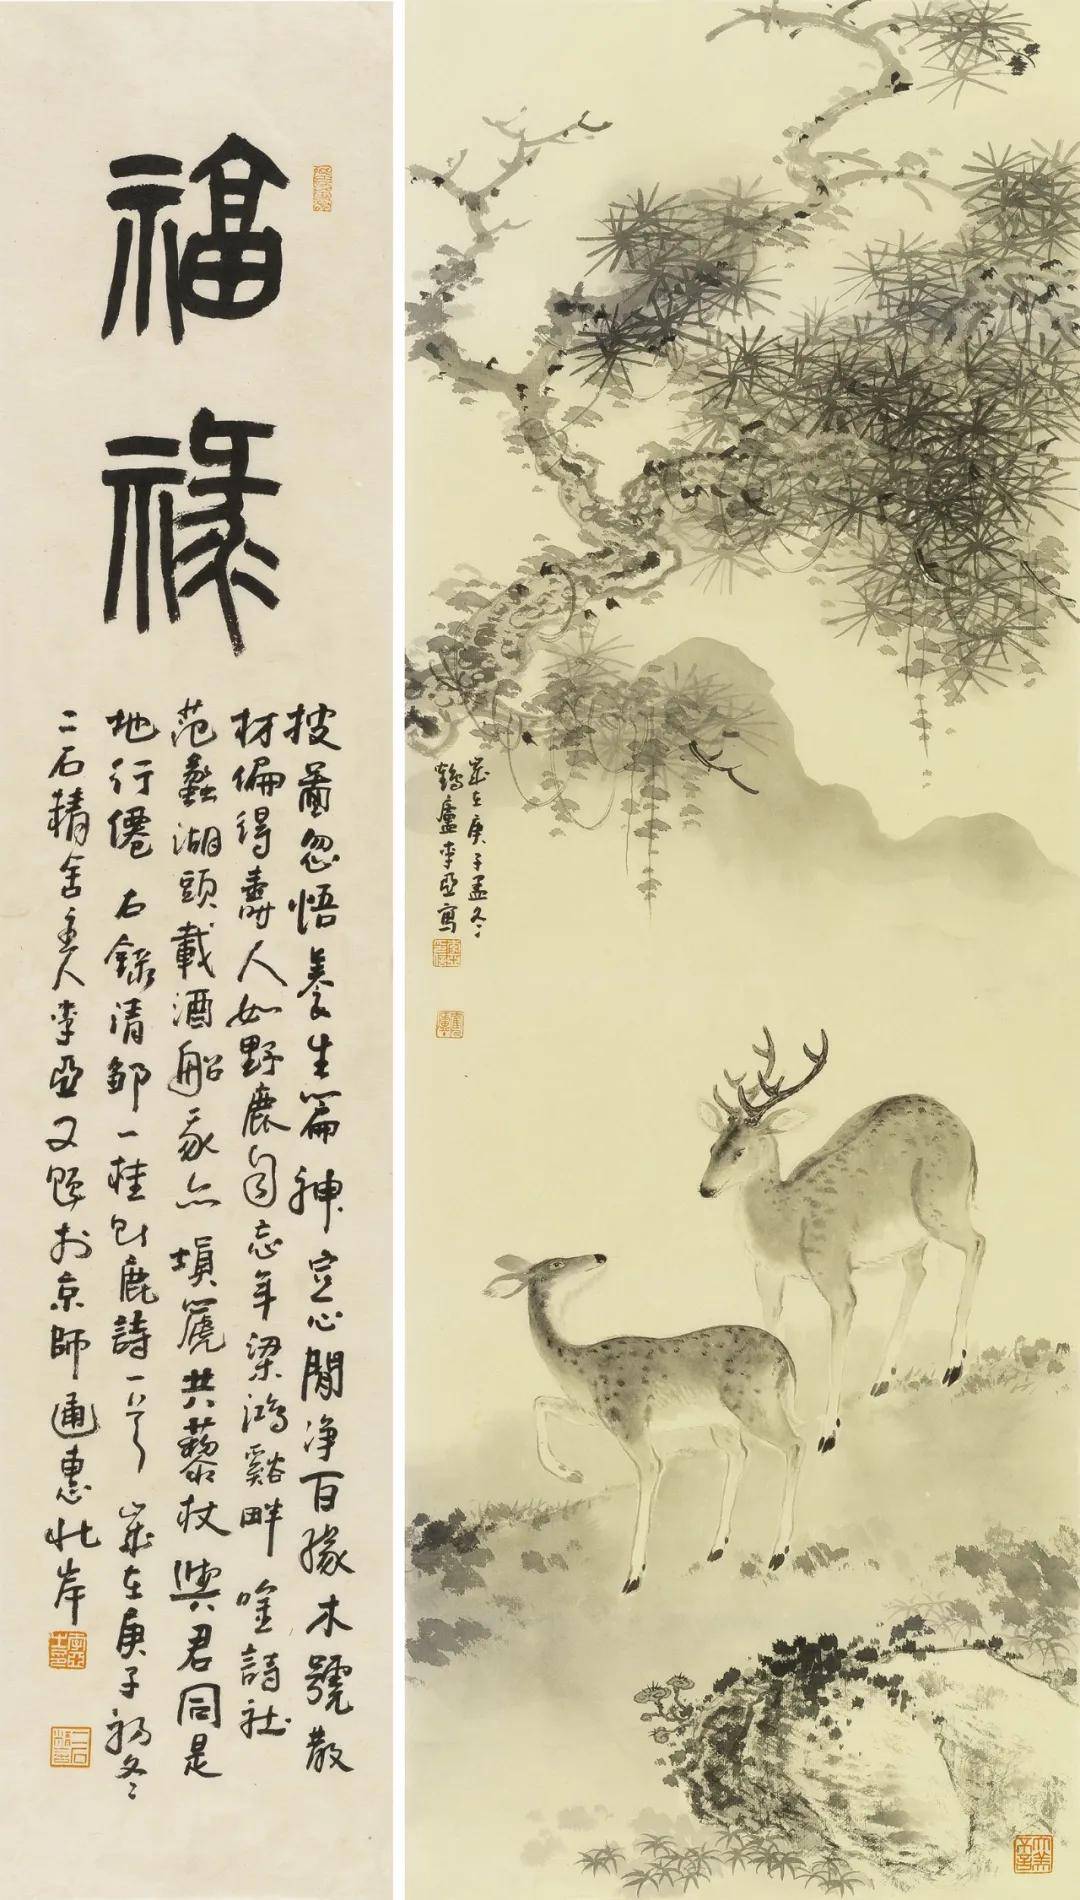 福祿
披圖忽悟養生篇神定心閒淨百緣木號散
材偏得壽人如野鹿自忘年梁鴻谿畔唫詩社
范蠡湖頭載酒船亦塤篪共藜杖與君同是
地行僊 右錄清鄒一桂鹿詩一首 歲在庚子初冬
二石精舍主人李亞又題於京師通惠北岸
歲在庚子孟冬
鶴廬李亞寫